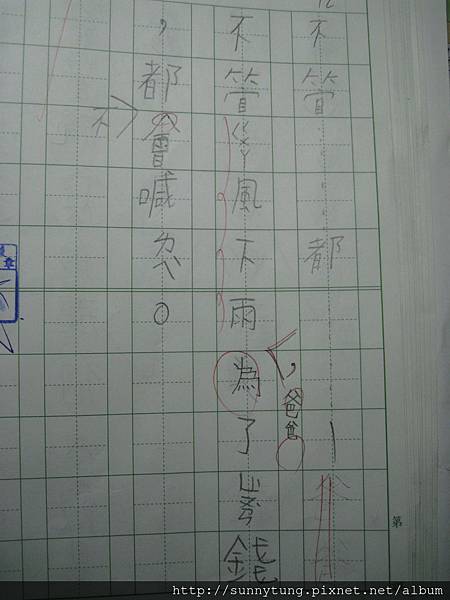 不管……都
不管ㄍㄨㄚ風下雨為了錢
，爸爸
，都會喊。
不
第
http://sunnytung.pixnet.net/album